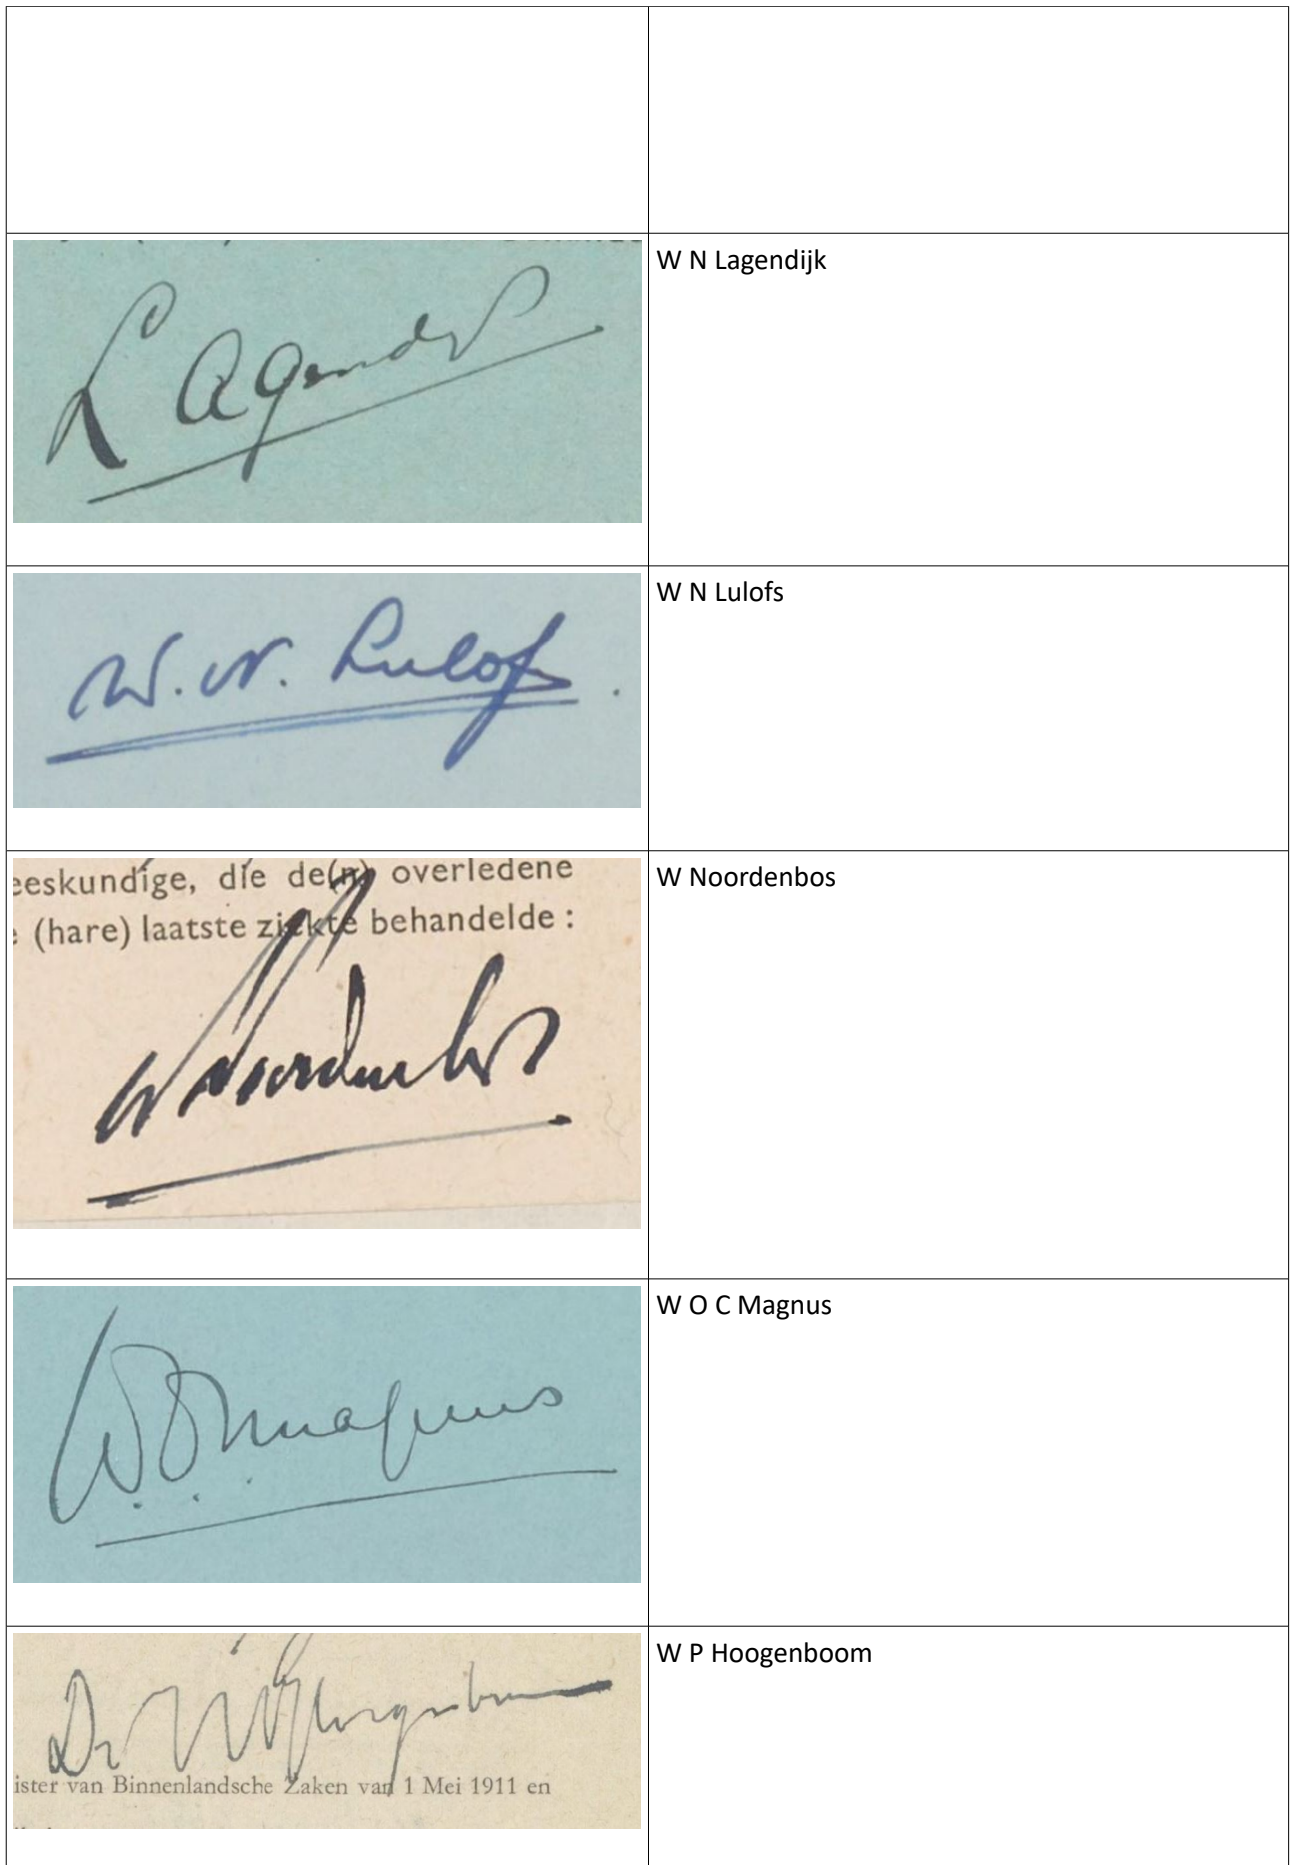 Lagendijk
W N Lagendijk
W. N. Lulofs
W N Lulofs
eeskundige, die de(n) overledene
e (hare) laatste ziekte behandelde :
W Noordenbos
W Noordenbos
W. O. C. Magnus
W O C Magnus
Dr W P Hoogenboom
W P Hoogenboom
ister van Binnenlandsche Zaken van 1 Mei 1911 en